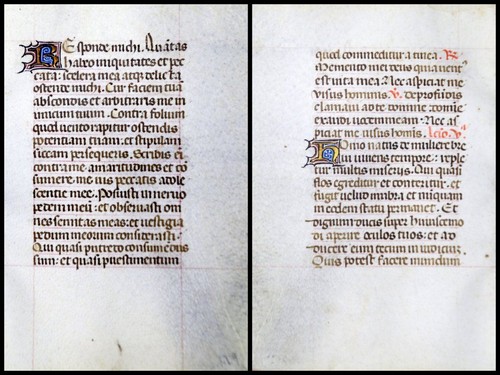 Responde michi. Quantas
habeo iniquitates et pec
cata: scelera mea atqz delicta
ostende michi. Cur faciem tuā
abscondis et arbitraris me in
imicum tuum. Contra folium
quod vento rapitur ostendis
potentiam tuam: et stipulam
siccam persequeris. Scribis eī
contra me amaritudines et cō
sumere me vis peccatis adole
scentie mee. Posuisti in nervo
pedem meū: et observasti om
nes semitas meas: et vestigia
pedum meorum considerasti.
Qui quasi putredo consumendus
sum: et quasi vestimentum
quod commeditur a tinea. R
Memento mei deus quia ventꝰ
est vita mea. Nec aspiciat me
visus hominis. V. De profundis
clamavi ad te domine: domine
exaudi vocem meam. Nec as
piciat me visus homīs. Lectō. v.ᵃ
Homo natus de muliere bre
vi vivens tempore: reple
tur multis miseriis. Qui quasi
flos egreditur et conteritur: et
fugit velud umbra et nūquam
in eodem statu permanet. Et
dignum ducis super huiuscemo
di aperire oculos tuos: et ad
ducere eum tecum in iudicium.
Quis potest facere mundum